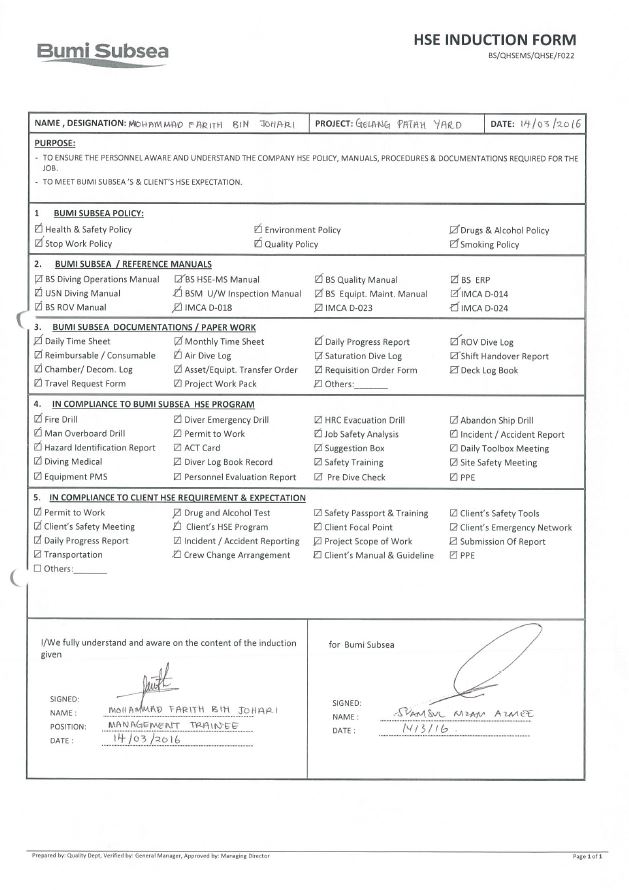 Bumi Subsea
HSE INDUCTION FORM
BS/QHSEMS/QHSE/F022
NAME , DESIGNATION: MOHAMMAD FARITH BIN JOHARI PROJECT: GELANG PATAH YARD DATE: 14/03/2016
PURPOSE:
- TO ENSURE THE PERSONNEL AWARE AND UNDERSTAND THE COMPANY HSE POLICY, MANUALS, PROCEDURES & DOCUMENTATIONS REQUIRED FOR THE
JOB.
- TO MEET BUMI SUBSEA'S & CLIENT'S HSE EXPECTATION.
1 BUMI SUBSEA POLICY:
☑ Health & Safety Policy ☑ Environment Policy ☑ Drugs & Alcohol Policy
☑ Stop Work Policy ☑ Quality Policy ☑ Smoking Policy
2. BUMI SUBSEA / REFERENCE MANUALS
☑ BS Diving Operations Manual ☑ BS HSE-MS Manual ☑ BS Quality Manual ☑ BS ERP
☑ USN Diving Manual ☑ BSM U/W Inspection Manual ☑ BS Equipt. Maint. Manual ☑ IMCA D-014
☑ BS ROV Manual ☑ IMCA D-018 ☑ IMCA D-023 ☑ IMCA D-024
3. BUMI SUBSEA DOCUMENTATIONS / PAPER WORK
☑ Daily Time Sheet ☑ Monthly Time Sheet ☑ Daily Progress Report ☑ ROV Dive Log
☑ Reimbursable / Consumable ☑ Air Dive Log ☑ Saturation Dive Log ☑ Shift Handover Report
☑ Chamber/ Decom. Log ☑ Asset/Equipt. Transfer Order ☑ Requisition Order Form ☑ Deck Log Book
☑ Travel Request Form ☑ Project Work Pack ☑ Others:______
4. IN COMPLIANCE TO BUMI SUBSEA HSE PROGRAM
☑ Fire Drill ☑ Diver Emergency Drill ☑ HRC Evacuation Drill ☑ Abandon Ship Drill
☑ Man Overboard Drill ☑ Permit to Work ☑ Job Safety Analysis ☑ Incident / Accident Report
☑ Hazard Identification Report ☑ ACT Card ☑ Suggestion Box ☑ Daily Toolbox Meeting
☑ Diving Medical ☑ Diver Log Book Record ☑ Safety Training ☑ Site Safety Meeting
☑ Equipment PMS ☑ Personnel Evaluation Report ☑ Pre Dive Check ☑ PPE
5. IN COMPLIANCE TO CLIENT HSE REQUIREMENT & EXPECTATION
☑ Permit to Work ☑ Drug and Alcohol Test ☑ Safety Passport & Training ☑ Client's Safety Tools
☑ Client's Safety Meeting ☑ Client's HSE Program ☑ Client Focal Point ☑ Client's Emergency Network
☑ Daily Progress Report ☑ Incident / Accident Reporting ☑ Project Scope of Work ☑ Submission Of Report
☑ Transportation ☑ Crew Change Arrangement ☑ Client's Manual & Guideline ☑ PPE
☐ Others:______
I/We fully understand and aware on the content of the induction
given
SIGNED:
NAME : MOHAMMAD FARITH BIN JOHARI
POSITION: MANAGEMENT TRAINEE
DATE : 14/03/2016
for Bumi Subsea
SIGNED:
NAME : SYAMSUL AZMEE
DATE : 14/3/16
Prepared by: Quality Dept, Verified by: General Manager, Approved by: Managing Director
Page 1 of 1